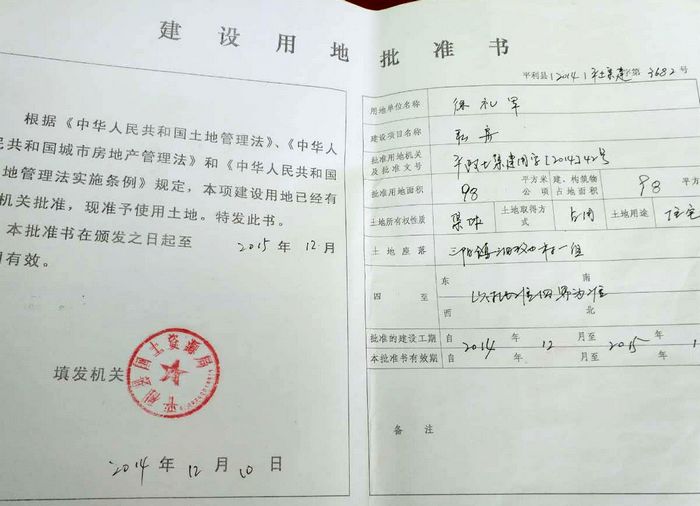 建设用地批准书
根据《中华人民共和国土地管理法》、《中华人
民共和国城市房地产管理法》和《中华人民共和国
地管理法实施条例》规定，本项建设用地已经有
机关批准，现准予使用土地。特发此书。
本批准书在颁发之日起至 2015 年 12 月
有效。
填发机关
平利县国土资源局
2014 年 12 月 10 日
平利县(2014)平土集建字第 3682 号
用地单位名称 徐礼军
建设项目名称
批准用地机关及批准文号 平政土集建用字[2014]42号
批准用地面积 98 平方米 公顷 建、构筑物占地面积 98 平方
土地所有权性质 集体 土地取得方式 占用 土地用途 住宅
土地座落 三阳镇 村一组
四至 东 南 西 北
以 四界为准
批准的建设工期 自 2014 年 12 月至 2015 年 1
本批准书有效期 自 年 月至 年
备注